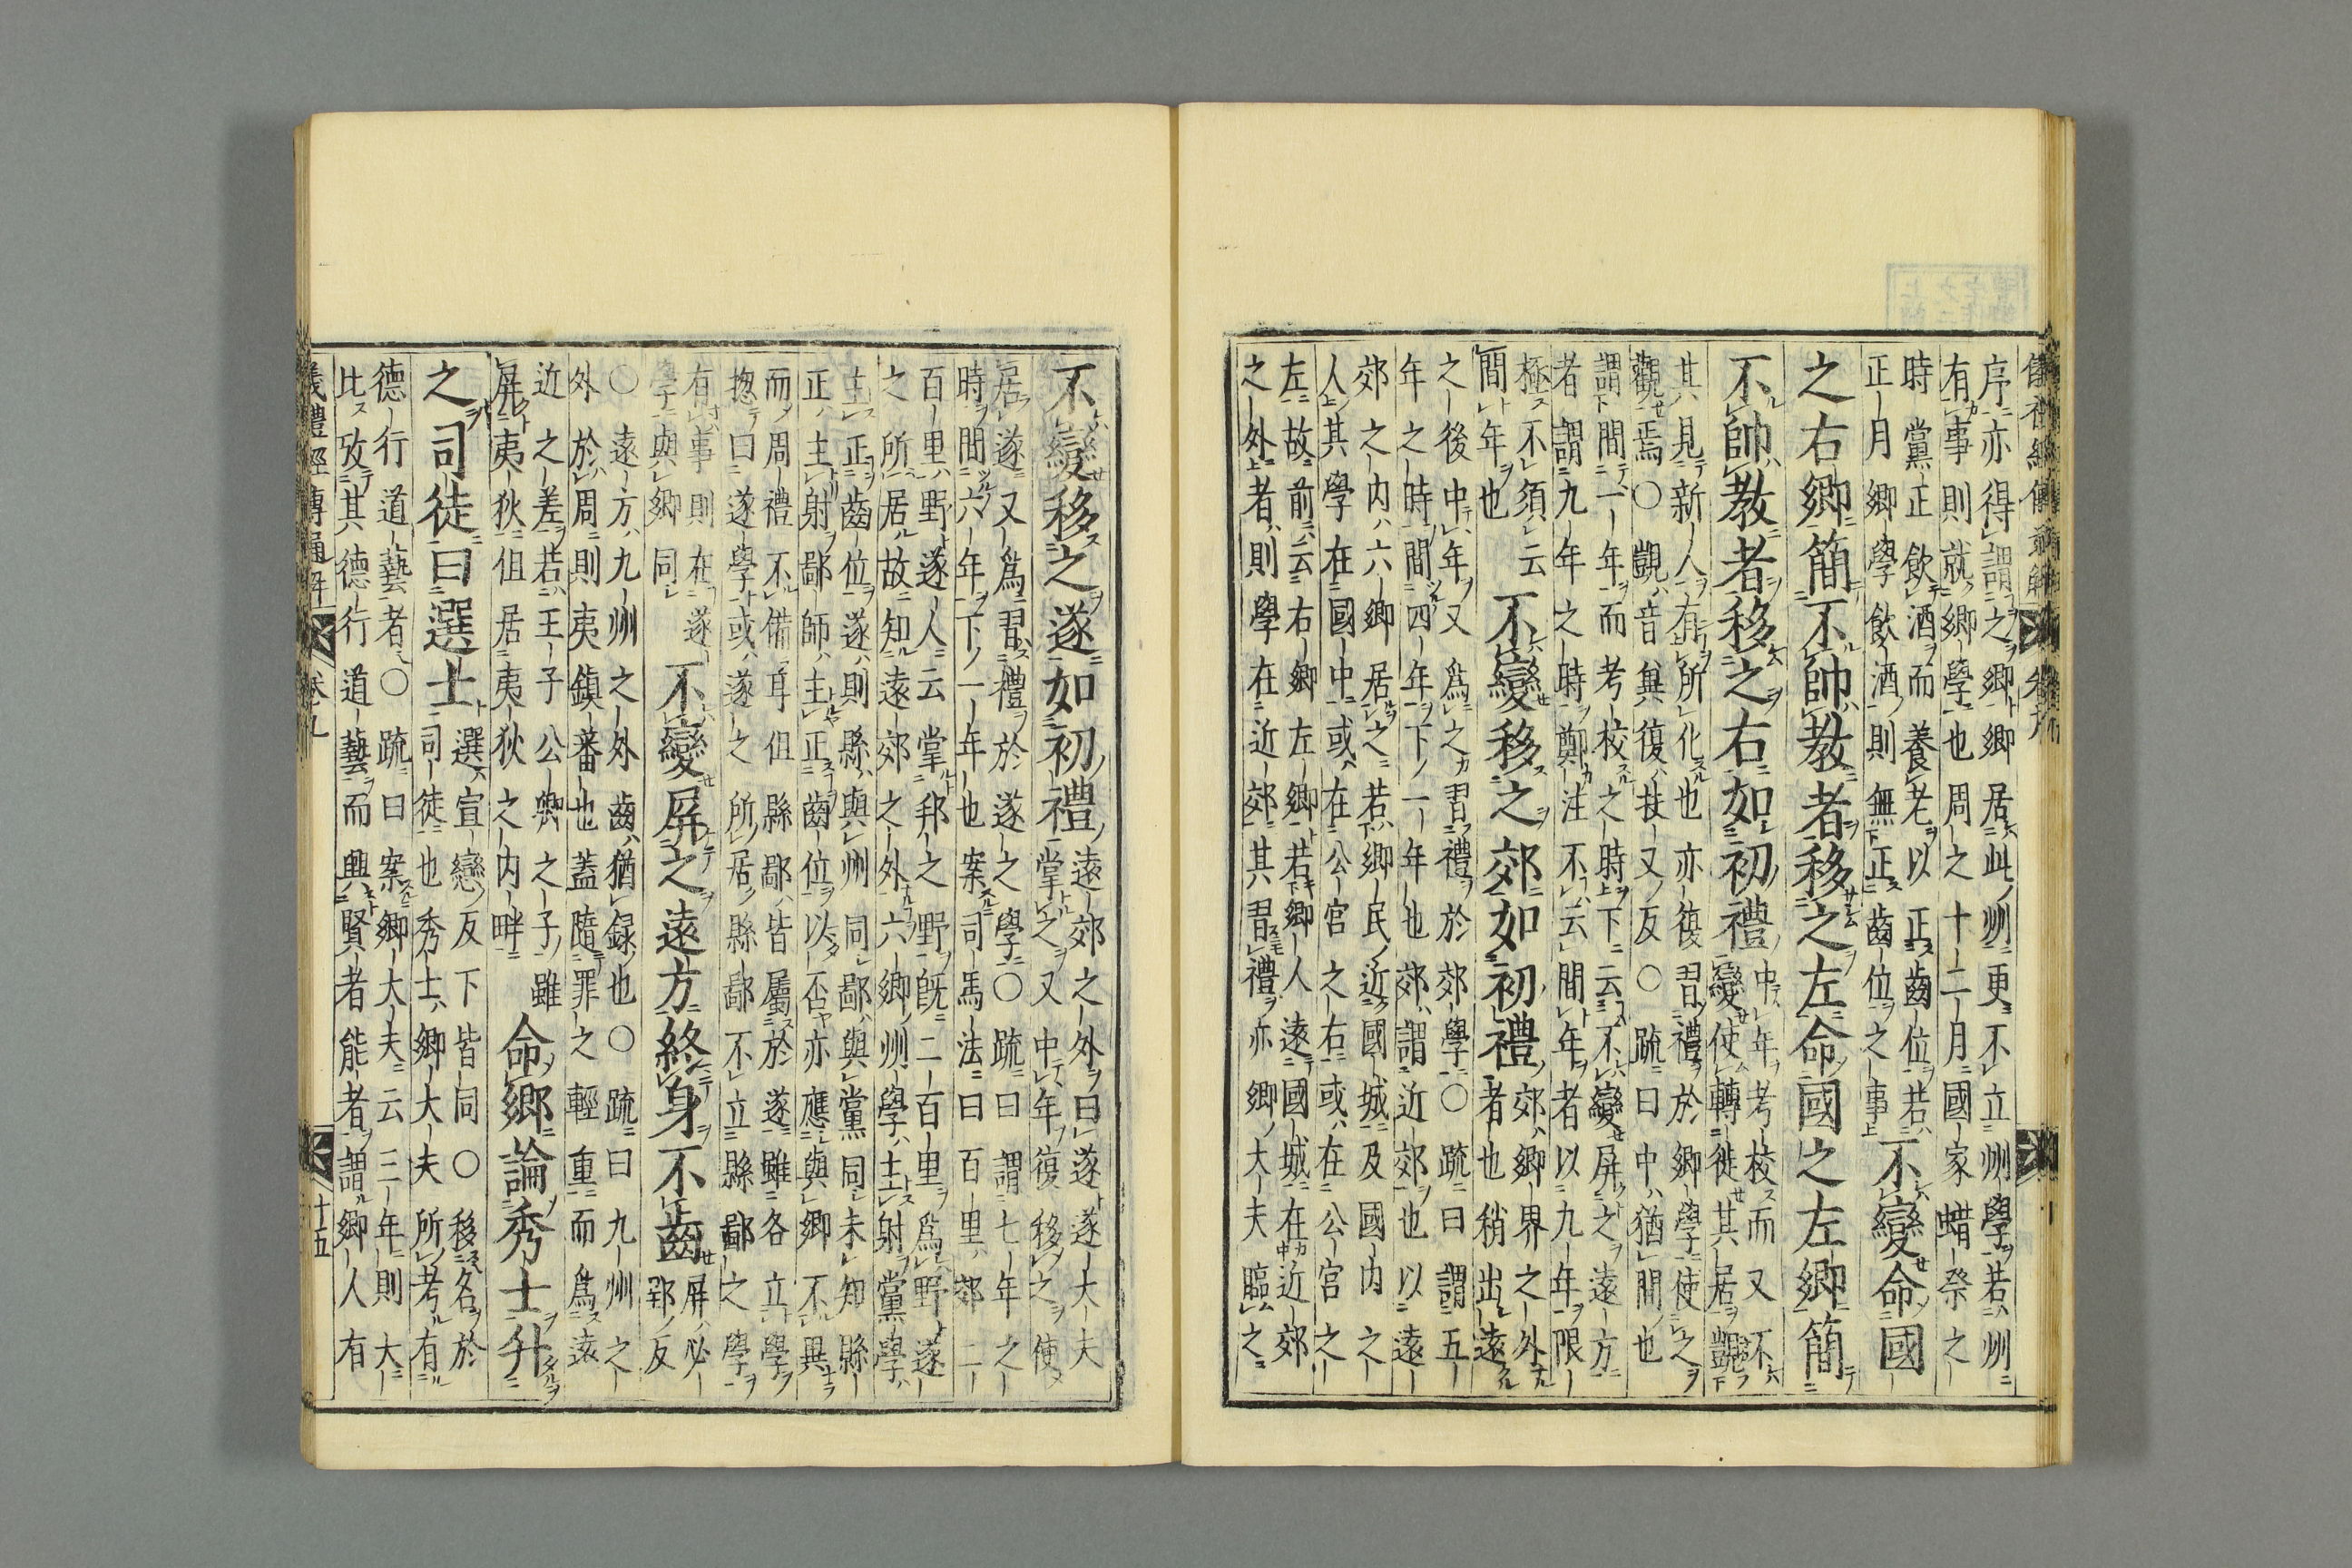 序亦得謂之鄉鄉居此州更不立州學若州
有事則就鄉學也周之十二月國家蜡祭之
時黨正飲酒而養老以正齒位若
正月鄉學飲酒則無正齒位之事
不變命國
之右鄉簡不帥教者移之左命國之左鄉簡
不帥教者移之右如初禮
中年考校而又不
變使轉徙其居覬
其見新人有所化也亦復習禮於鄉學使之
觀焉○覬音冀復扶又反○疏曰中猶間也
謂間一年而考校之時下云不變屏之遠方
者謂九年之時鄭注不云間年者以九年限
極不須云
間年也
不變移之郊如初禮
郊鄉界之外
者也稍出遠
之後中年又爲之習禮於郊學○疏曰謂五
年之時間四年下一年也郊謂近郊也以遠
郊之内六鄉居之若鄉民近國城及國内之
人其學在國中或在公宮之右或在公宮之
左故前云右鄉左鄉若鄉人遠國城在近郊
之外者則學在近郊其習禮亦鄉大夫臨之
不變移之遂如初禮
遠郊之外曰遂遂大夫
掌之又中年復移之使
居遂又爲習禮於遂之學○疏曰謂七年之
時間六年下一年也案司馬法曰百里郊二
百里野遂人云掌邦之野既二百里爲野遂
之所居故知遠郊之外六鄉州學士射黨學
主正齒位遂則縣與州同鄙與黨同未知縣
正主射鄙師主正齒位以否亦應與鄉不異
而周禮不備耳但縣鄙皆屬於遂雖各立學
揔曰遂學或遂之所居縣鄙不立縣鄙之學
有事則在遂
學與鄉同
不變屏之遠方終身不齒
屏必
郢反
○遠方九州之外齒猶録也○疏曰九州之
外於周則夷鎮蕃也蓋隨罪之輕重而爲遠
近之差若王子公卿之子雖
屏夷狄但居夷狄之内畔
命鄉論秀士升
之司徒曰選士
選宣戀反下皆同○移名於
司徒也秀士鄉大夫所考有
德行道藝者○疏曰案鄉大夫云三年則大
比攷其德行道藝而興賢者能者謂鄉人有
儀禮經傳通解 卷九 十五